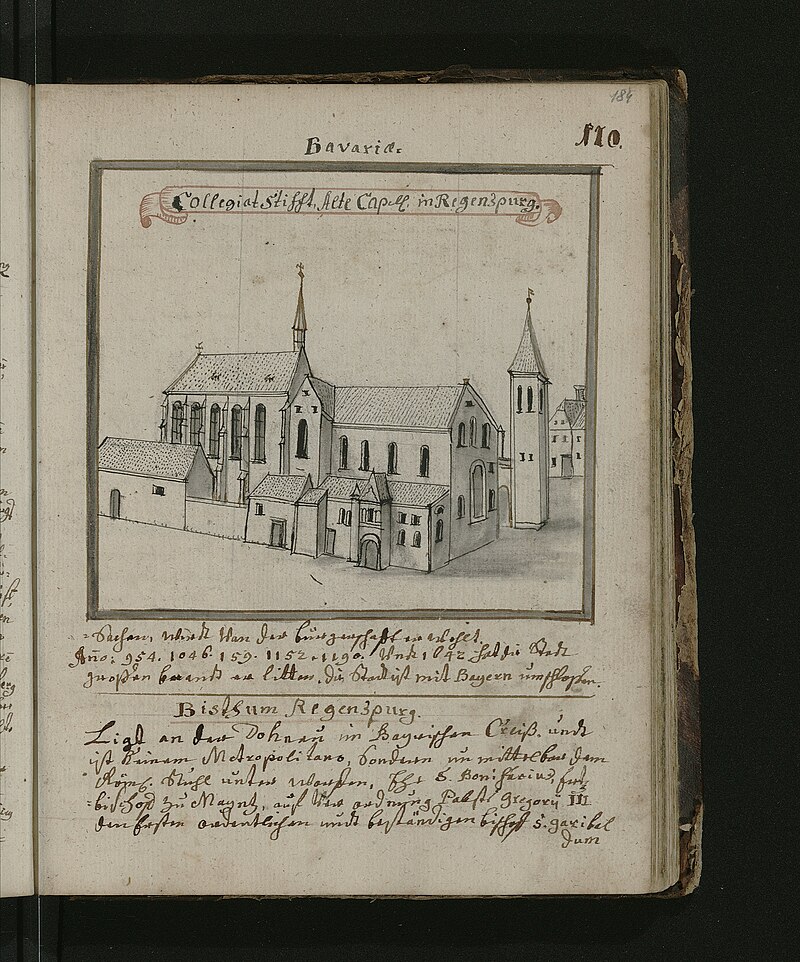 184
110.
Bavariæ.
Collegiat Stifft, Alte Capell. in Regenspurg.
Sachen, würdt Von der bürgerschafft erwohlt.
Año: 954. 1046. 159. 1152. 1190. Undt 1642 hat die Stadt
großen brandt erlitten. die Stadt ist mit Bayern umschloßen.
Bisthum Regenspurg.
Ligt an der Dohnau im Bayrischen Creiß. undt
ist Keinem Metropolitano, Sondern unmittelbar dem
Röm. Stuhl unterworffen. S. Bonifacius, Ertz
bischoff zu Mayntz, auß Verordnung Pabsts Gregorij III
den Ersten ordentlichen undt beständigen bischoff S. garibal
dum